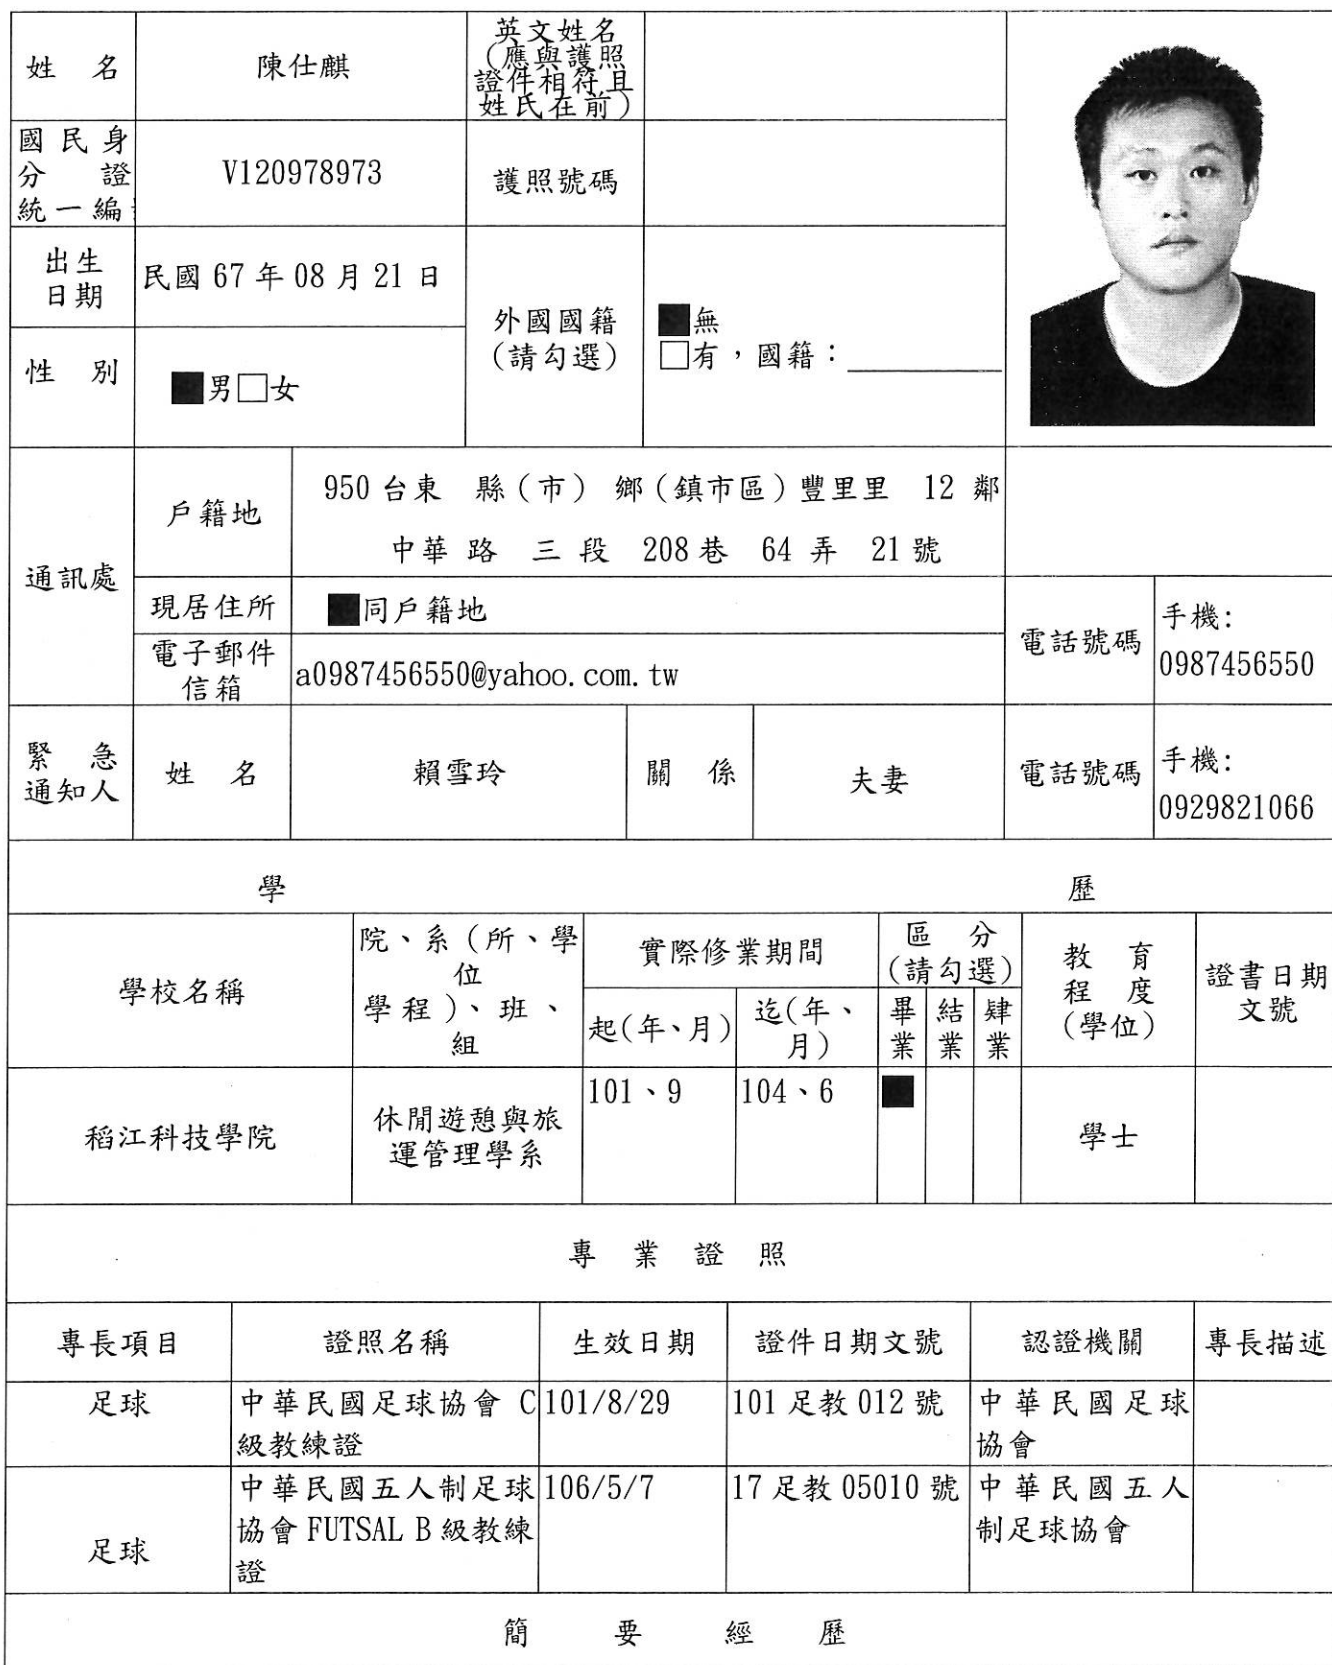 姓 名
陳仕麒
英文姓名
(應與護照
證件相符且
姓氏在前)
國民身
分 證
統一編
V120978973
護照號碼
出生
日期
民國 67 年 08 月 21 日
外國國籍
(請勾選)
■無
□有，國籍：
性 別
■男□女
通訊處
戶籍地
950 台東 縣(市) 鄉(鎮市區)豐里里 12 鄰
中華 路 三 段 208 巷 64 弄 21 號
現居住所
■同戶籍地
電子郵件
信箱
a0987456550@yahoo.com.tw
電話號碼
手機:
0987456550
緊 急
通知人
姓 名
賴雪玲
關 係
夫妻
電話號碼
手機:
0929821066
學 歷
學校名稱
院、系(所、學
位
學程)、班、
組
實際修業期間
起(年、月)
迄(年、
月)
區 分
(請勾選)
畢
業
結
業
肄
業
教 育
程 度
(學位)
證書日期
文號
稻江科技學院
休閒遊憩與旅
運管理學系
101、9
104、6
■
學士
專 業 證 照
專長項目
證照名稱
生效日期
證件日期文號
認證機關
專長描述
足球
中華民國足球協會 C
級教練證
101/8/29
101 足教 012 號
中華民國足球
協會
足球
中華民國五人制足球
協會 FUTSAL B 級教練
證
106/5/7
17 足教 05010 號
中華民國五人
制足球協會
簡 要 經 歷